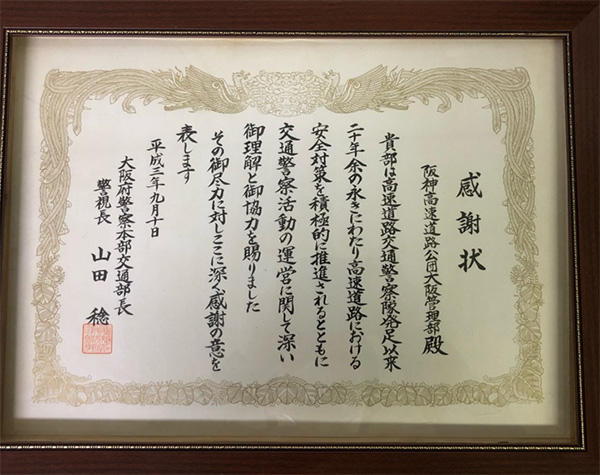 感謝状
阪神高速道路公団大阪管理部殿
貴部は高速道路交通警察隊発足以来
二十年余の永きにわたり高速道路における
安全対策を積極的に推進されるとともに
交通警察活動の運営に関して深い
御理解と御協力を賜りました
その御尽力に対しここに深く感謝の意を
表します
平成三年九月十日
大阪府警察本部交通部長
警視長 山田 稔